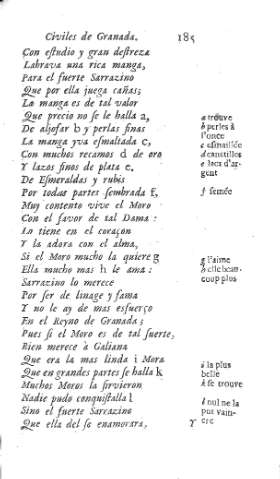 Civiles de Granada. 185
Con estudio y gran destreza
Labrava una rica manga,
Para el fuerte Sarrazino
Que por ella juega cañas;
La manga es de tal valor
Que precio no se le halla a,
De aljofar b y perlas finas
La manga yva esmaltada c,
Con muchos recamos d de oro
Y lazos finos de plata e,
De Esmeraldas y rubis
Por todas partes sembrada f,
Muy contento vive el Moro
Con el favor de tal Dama:
Lo tiene en el coraçon
Y la adora con el alma,
Si el Moro mucho la quiere g
Ella mucho mas h le ama:
Sarrazino lo merece
Por ser de linage y fama
Y no le ay de mas esfuerço
En el Reyno de Granada;
Pues si el Moro es de tal suerte,
Bien merece à Galiana
Que era la mas linda i Mora
Que en grandes partes se halla k
Muchos Moros la sirvieron
Nadie pudo conquistalla l
Sino el fuerte Sarrazino
Que ella del se enamorara,
a trouve
b perles à
l'once
c esmaillée
d canutilles
e lacz d'ar-
gent
f semée
g l'aime
h elle beau-
coup plus
i la plus
belle
k se trouve
l nul ne la
put vain-
cre
Y